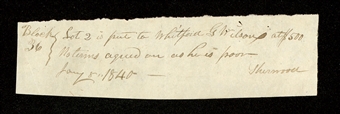 Block 36 { Lot 2 is put to Whitford G Wilson, at $500
Returns agreed on as he is poor
Jany 5. 1840 —
Sherwood